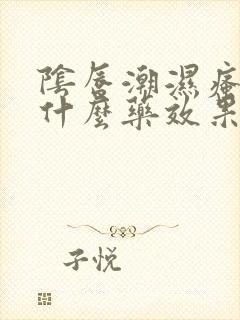 陰唇潮濕瘙
什麼藥效果
子悦